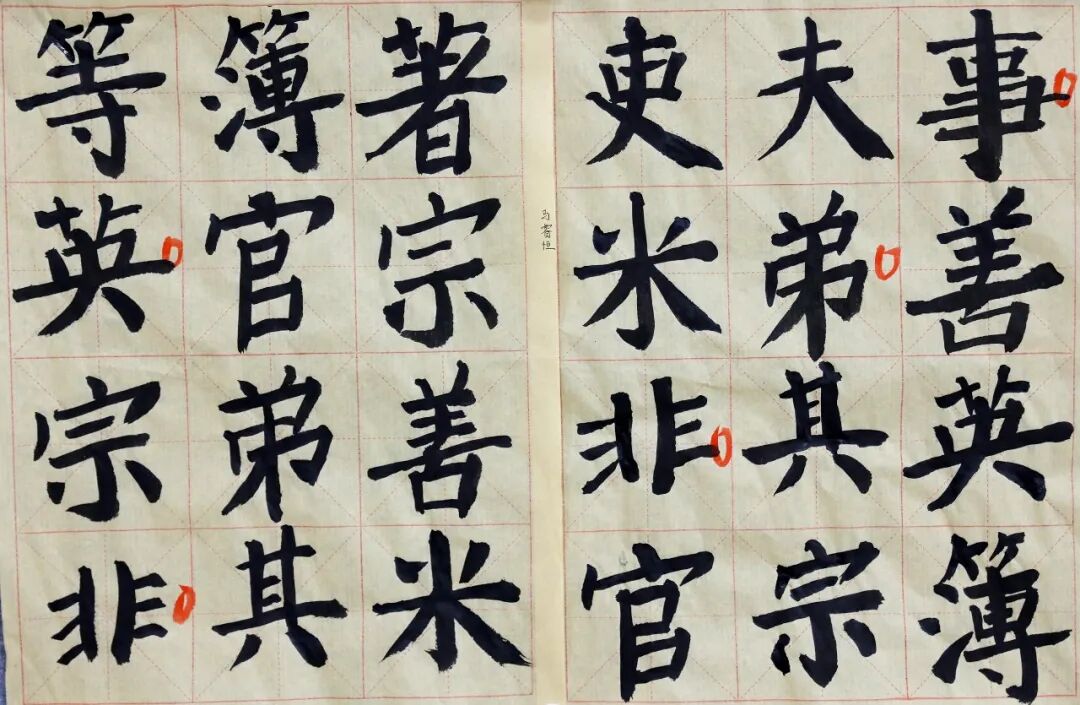 事善英簿
夫弟其宗
吏米非官
著宗善米
簿官弟其
等英宗非